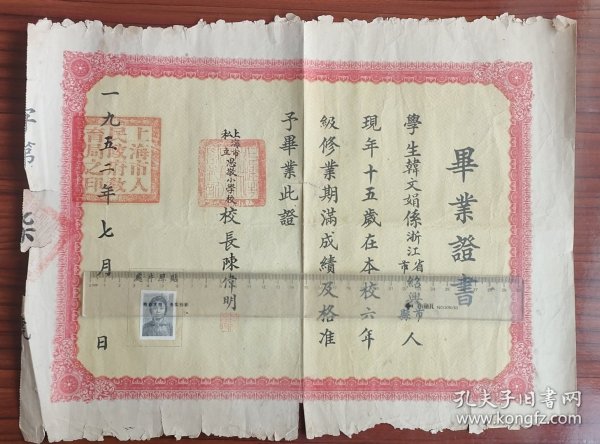 畢業證書
學生韓文娟係浙江省紹興市縣人
現年十五歲在本校六年
級修業期滿成績及格准
予畢業此證
上海市私立思敬小學校 校長陳偉明
一九五二年七月 日
上海市人民政府教育局之印
字第
孔夫子旧书网
www.kongfz.com